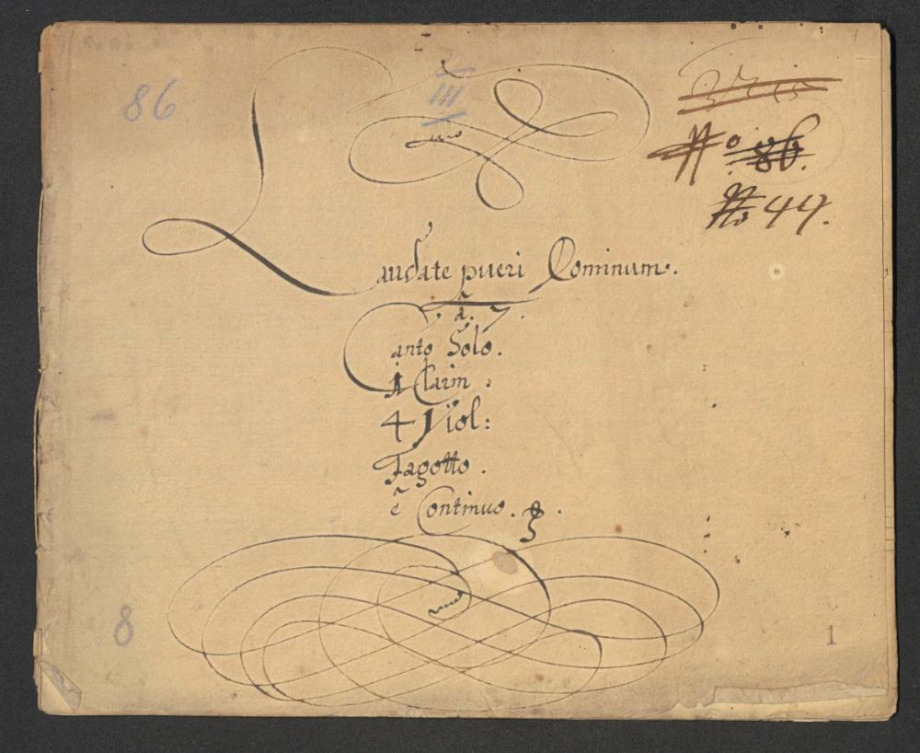 86
III
No. 86.
No 44.
Laudate pueri Dominum.
à. 7.
Canto Solo.
1 Clarin.
4 Viol:
Fagotto.
è Continuo.
8
1